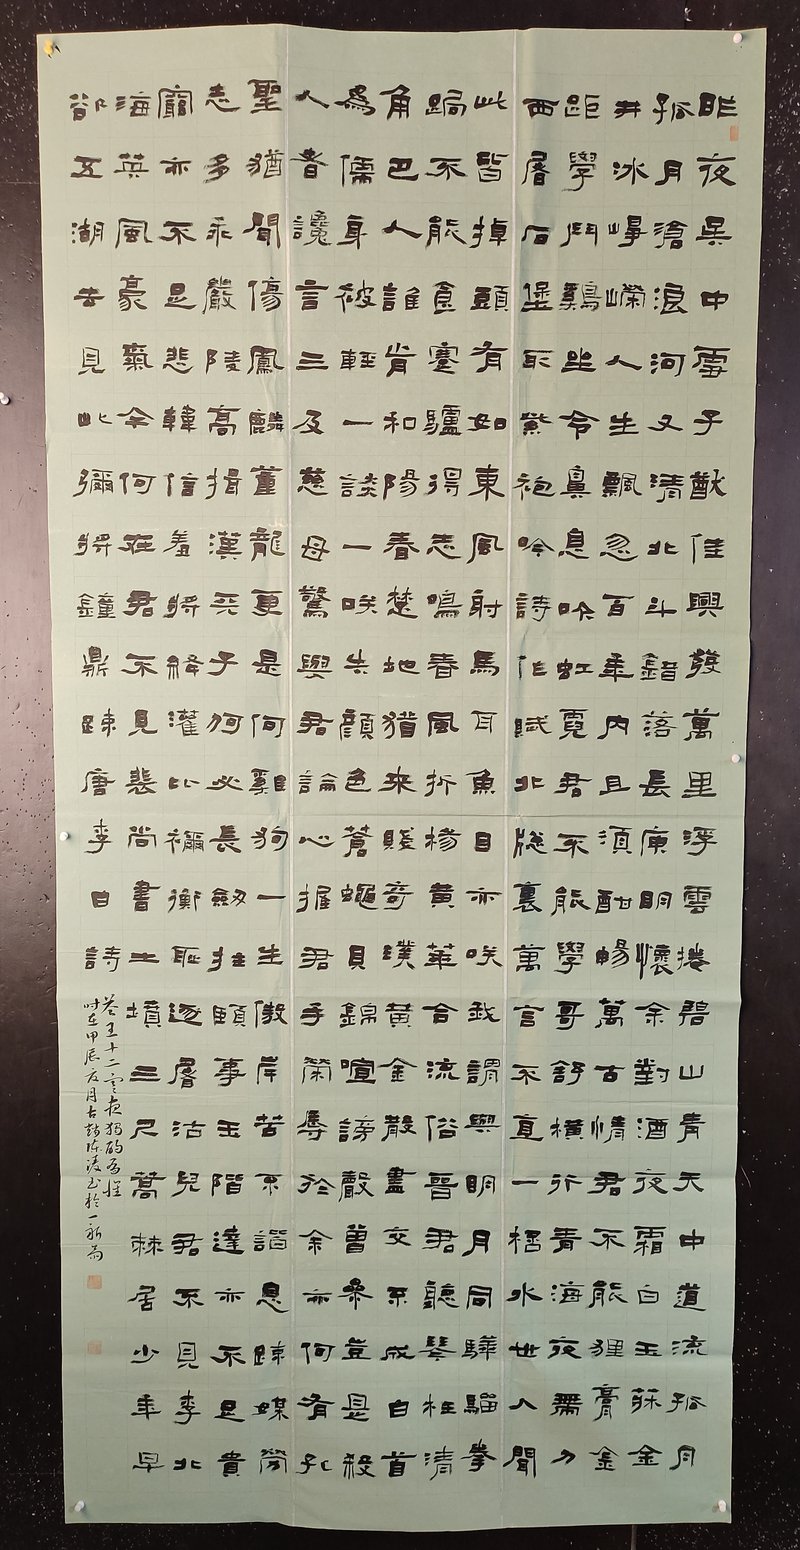 昨夜吳中雪子猷佳興發萬里浮雲捲碧山青天中道流孤月
孤月滄浪河又清北斗錯落長庚明懷余對酒夜霜白玉牀金
井冰崢嶸人生飄忽百年內且須酣暢萬古情君不能狸膏金
距學鬥鷄坐令鼻息吹虹霓君不能學哥舒橫行青海夜帶刀
西屠石堡取紫袍吟詩作賦北窗裏萬言不直一杯水世人聞
此皆掉頭有如東風射馬耳魚目亦笑我謂與明月同驊騮拳
跼不能食蹇驢得志鳴春風折楊黃華合流俗晉君聽琴枉清
角巴人誰肯和陽春楚地猶來賤奇璞黃金散盡交不成白首
為儒身被輕一談一笑失顏色蒼蠅貝錦喧謗聲曾參豈是殺
人者讒言三及慈母驚與君論心握君手榮辱於余亦何有孔
聖猶聞傷鳳麟董龍更是何雞狗一生傲岸苦不諧恩疎媒勞
志多乖嚴陵高揖漢天子何必長劍拄頤事玉階達亦不足貴
窮亦不足悲韓信羞將絳灌比禰衡恥逐屠沽兒君不見李北
海英風豪氣今何在君不見裴尚書土墳三尺蒿棘居少年早
欲五湖去見此彌將鐘鼎疎唐李白詩
答王十二寒夜獨酌有懷
時在甲辰夏月古陳書於一齋